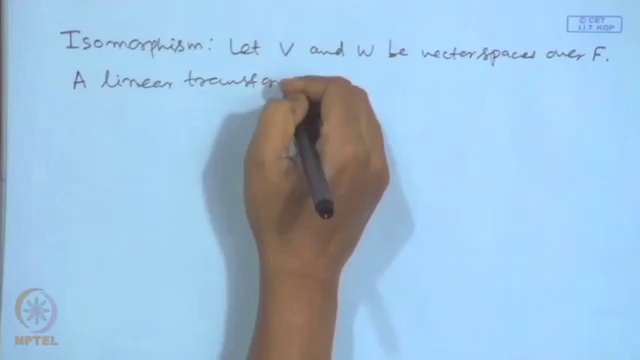 © CET
I.I.T. KGP
Isomorphism: Let V and W be vector spaces over F.
A linear transfor
NPTEL